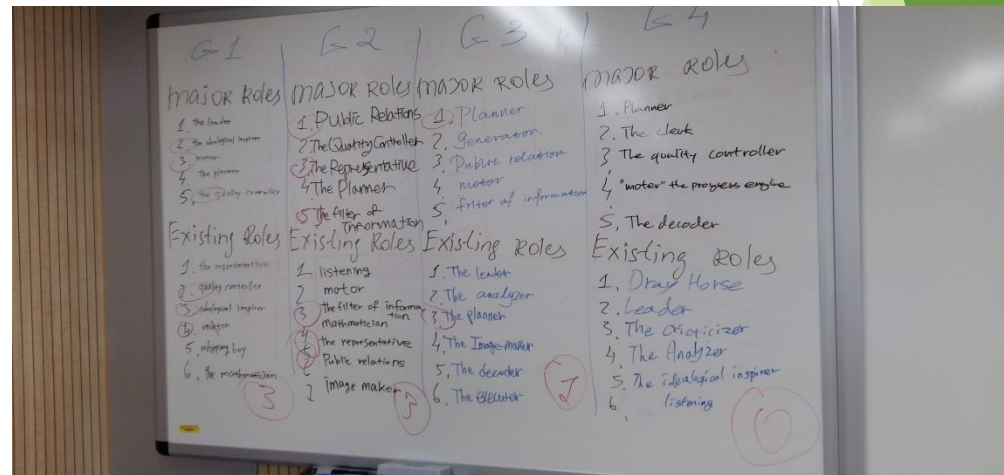 G1
Major Roles
1. the leader
2. the idealogical inspirer
3. motor
4. the planner
5. the quality controller
Existing Roles
1. the representative
2. quality controller
3. idealogical inspirer
4. motor
5. whipping boy
6. the mathmatician
3
G2
Major Roles
1. Public Relations
2. The Quality Controller
3. The Representative
4 The Planner
5 The filter of
Information
Existing Roles
1 listening
2 motor
3 the filter of informa
tion
mathmatician
4 the representative
Public relations
Image maker
3
G3
Major Roles
1. Planner
2. Generator
3. Public relation
4. motor
5. filter of information
Existing Roles
1. The leader
2. The analyzer
3. The planner
4. The Image-maker
5. The decoder
6. The Executor
2
G4
Major Roles
1. Planner
2. The clerk
3 The quality controller
4 "moter" the progress engine
5. The decoder
Existing Roles
1. Dray Horse
2. Leader
3. The
4. The Analyzer
5. The idealogical inspirer
6. listening
0